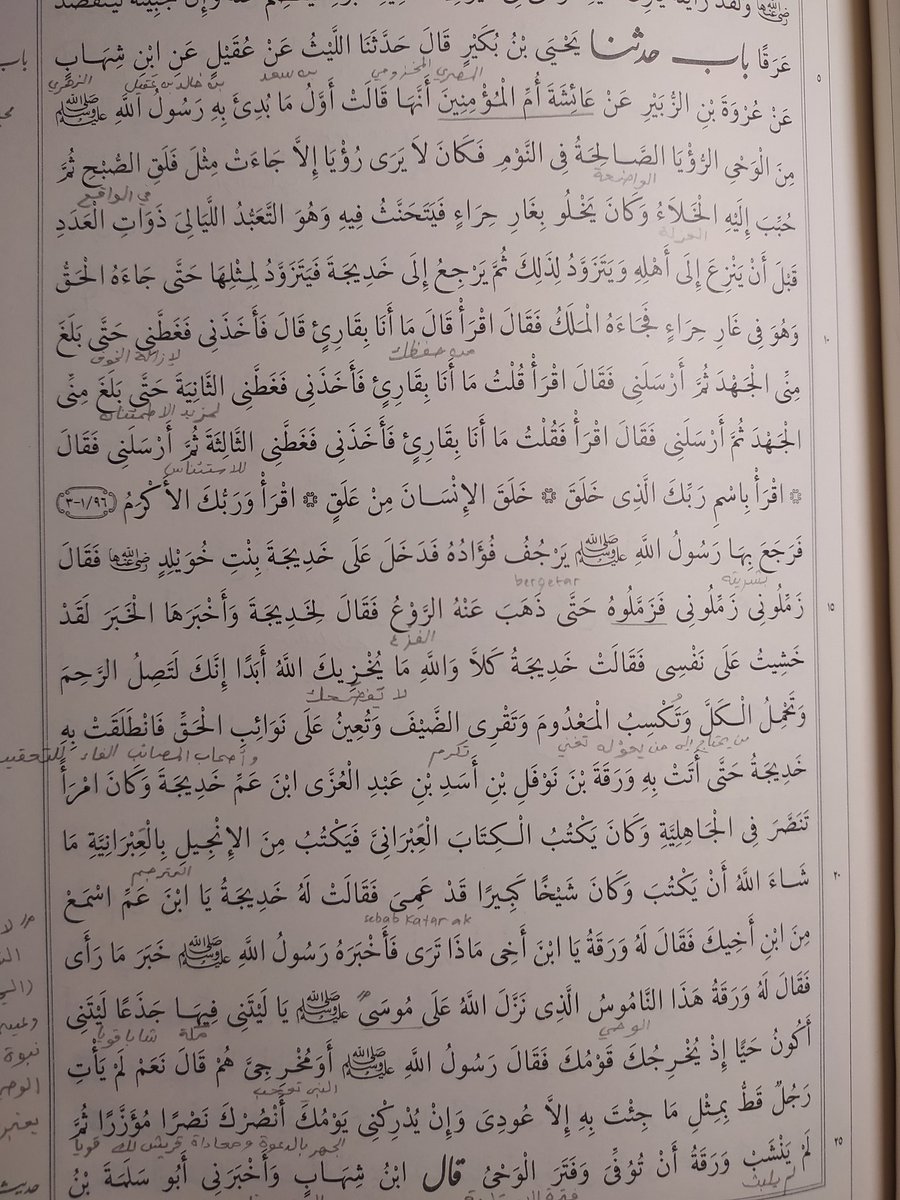 عَرَقًا باب حدثنا يَحْيَى بْنُ بُكَيْرٍ قَالَ حَدَّثَنَا اللَّيْثُ عَنْ عُقَيْلٍ عَنِ ابْنِ شِهَابٍ
المصري المخزومي بن سعد بن خالد بن عقيل الزهري
عَنْ عُرْوَةَ بْنِ الزُّبَيْرِ عَنْ عَائِشَةَ أُمِّ الْمُؤْمِنِينَ أَنَّهَا قَالَتْ أَوَّلُ مَا بُدِئَ بِهِ رَسُولُ اللَّهِ ﷺ
مِنَ الْوَحْىِ الرُّؤْيَا الصَّالِحَةُ فِى النَّوْمِ فَكَانَ لاَ يَرَى رُؤْيَا إِلاَّ جَاءَتْ مِثْلَ فَلَقِ الصُّبْحِ ثُمَّ
الواضحة في الواقع
حُبِّبَ إِلَيْهِ الْخَلاَءُ وَكَانَ يَخْلُو بِغَارِ حِرَاءٍ فَيَتَحَنَّثُ فِيهِ وَهُوَ التَّعَبُّدُ اللَّيَالِىَ ذَوَاتِ الْعَدَدِ
العزلة
قَبْلَ أَنْ يَنْزِعَ إِلَى أَهْلِهِ وَيَتَزَوَّدُ لِذَلِكَ ثُمَّ يَرْجِعُ إِلَى خَدِيجَةَ فَيَتَزَوَّدُ لِمِثْلِهَا حَتَّى جَاءَهُ الْحَقُّ
وَهُوَ فِى غَارِ حِرَاءٍ فَجَاءَهُ الْمَلَكُ فَقَالَ اقْرَأْ قَالَ مَا أَنَا بِقَارِئٍ قَالَ فَأَخَذَنِى فَغَطَّنِى حَتَّى بَلَغَ
من حفظك لإزالة الخوف
مِنِّى الْجَهْدَ ثُمَّ أَرْسَلَنِى فَقَالَ اقْرَأْ قُلْتُ مَا أَنَا بِقَارِئٍ فَأَخَذَنِى فَغَطَّنِى الثَّانِيَةَ حَتَّى بَلَغَ مِنِّى
لمزيد الاطمئنان
الْجَهْدَ ثُمَّ أَرْسَلَنِى فَقَالَ اقْرَأْ فَقُلْتُ مَا أَنَا بِقَارِئٍ فَأَخَذَنِى فَغَطَّنِى الثَّالِثَةَ ثُمَّ أَرْسَلَنِى فَقَالَ
للاستئناس
اقْرَأْ بِاسْمِ رَبِّكَ الَّذِى خَلَقَ خَلَقَ الإِنْسَانَ مِنْ عَلَقٍ اقْرَأْ وَرَبُّكَ الأَكْرَمُ ٩٦/١-٣
فَرَجَعَ بِهَا رَسُولُ اللَّهِ ﷺ يَرْجُفُ فُؤَادُهُ فَدَخَلَ عَلَى خَدِيجَةَ بِنْتِ خُوَيْلِدٍ رضي الله عنها فَقَالَ
بشريته bergetar
١٥ زَمِّلُونِى زَمِّلُونِى فَزَمَّلُوهُ حَتَّى ذَهَبَ عَنْهُ الرَّوْعُ فَقَالَ لِخَدِيجَةَ وَأَخْبَرَهَا الْخَبَرَ لَقَدْ
الفزع
خَشِيتُ عَلَى نَفْسِى فَقَالَتْ خَدِيجَةُ كَلاَّ وَاللَّهِ مَا يُخْزِيكَ اللَّهُ أَبَدًا إِنَّكَ لَتَصِلُ الرَّحِمَ
لا تفضحك
وَتَحْمِلُ الْكَلَّ وَتُكْسِبُ الْمَعْدُومَ وَتَقْرِى الضَّيْفَ وَتُعِينُ عَلَى نَوَائِبِ الْحَقِّ فَانْطَلَقَتْ بِهِ
من يحتاج إلى من يعوله تغني تكرم وأصحاب المصائب الفاء للتعقيب
خَدِيجَةُ حَتَّى أَتَتْ بِهِ وَرَقَةَ بْنَ نَوْفَلِ بْنِ أَسَدِ بْنِ عَبْدِ الْعُزَّى ابْنَ عَمِّ خَدِيجَةَ وَكَانَ امْرَأً
تَنَصَّرَ فِى الْجَاهِلِيَّةِ وَكَانَ يَكْتُبُ الْكِتَابَ الْعِبْرَانِىَّ فَيَكْتُبُ مِنَ الإِنْجِيلِ بِالْعِبْرَانِيَّةِ مَا
المترجم
٢٠ شَاءَ اللَّهُ أَنْ يَكْتُبَ وَكَانَ شَيْخًا كَبِيرًا قَدْ عَمِىَ فَقَالَتْ لَهُ خَدِيجَةُ يَا ابْنَ عَمِّ اسْمَعْ
sebab katarak
مِنَ ابْنِ أَخِيكَ فَقَالَ لَهُ وَرَقَةُ يَا ابْنَ أَخِى مَاذَا تَرَى فَأَخْبَرَهُ رَسُولُ اللَّهِ ﷺ خَبَرَ مَا رَأَى
فَقَالَ لَهُ وَرَقَةُ هَذَا النَّامُوسُ الَّذِى نَزَّلَ اللَّهُ عَلَى مُوسَى ﷺ يَا لَيْتَنِى فِيهَا جَذَعًا لَيْتَنِى
الوحي مكة شابا قويا
أَكُونُ حَيًّا إِذْ يُخْرِجُكَ قَوْمُكَ فَقَالَ رَسُولُ اللَّهِ ﷺ أَوَمُخْرِجِىَّ هُمْ قَالَ نَعَمْ لَمْ يَأْتِ
رَجُلٌ قَطُّ بِمِثْلِ مَا جِئْتَ بِهِ إِلاَّ عُودِىَ وَإِنْ يُدْرِكْنِى يَوْمُكَ أَنْصُرْكَ نَصْرًا مُؤَزَّرًا ثُمَّ
الجهر بالدعوة ومعاداة قريش لك قويا
٢٥ لَمْ يَنْشَبْ وَرَقَةُ أَنْ تُوُفِّىَ وَفَتَرَ الْوَحْىُ قال ابْنُ شِهَابٍ وَأَخْبَرَنِى أَبُو سَلَمَةَ بْنُ
لم يلبث